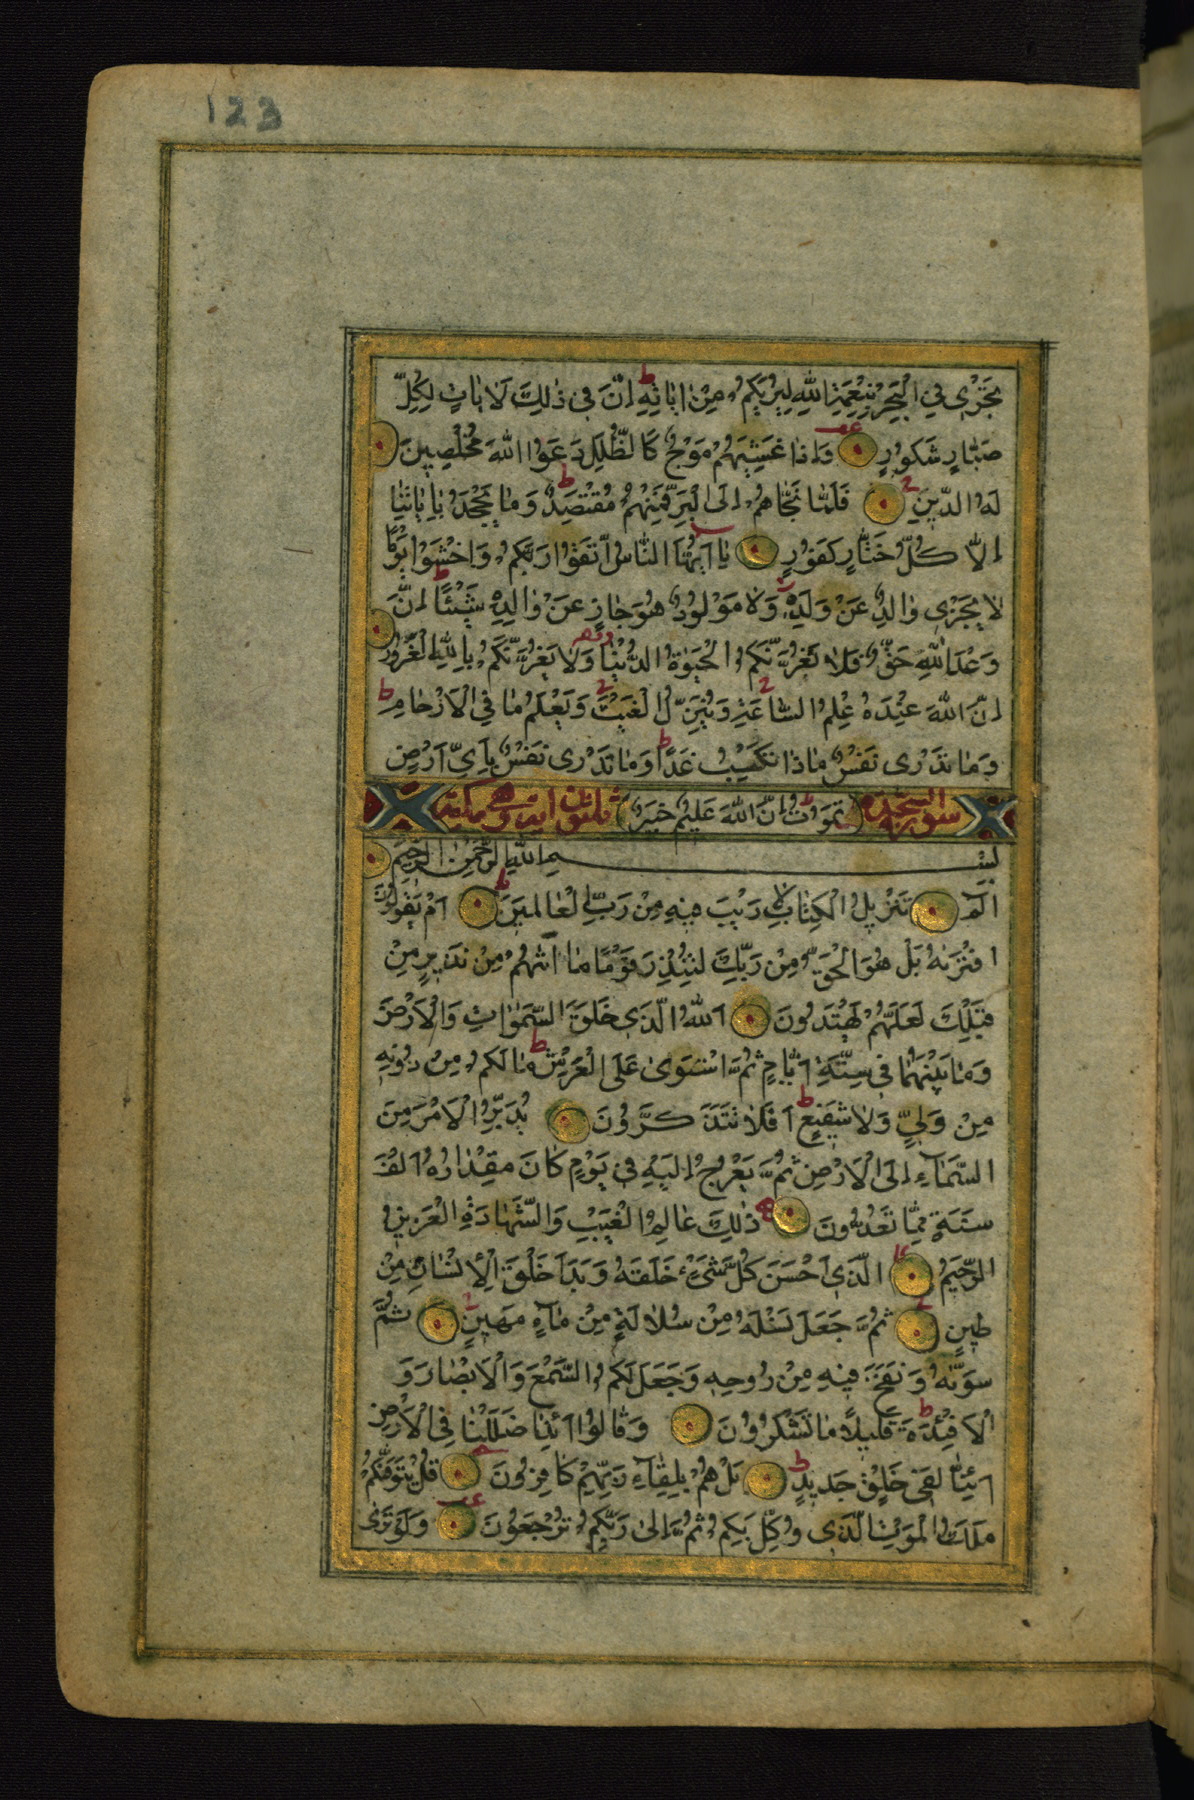 123
تَجْرِي فِي الْبَحْرِ بِنِعْمَةِ اللهِ لِيُرِيَكُمْ مِنْ اٰيَاتِهِ ط اِنَّ فِي ذٰلِكَ لَاٰيَاتٍ لِكُلِّ
صَبَّارٍ شَكُورٍ وَاِذَا غَشِيَهُمْ مَوْجٌ كَالظُّلَلِ دَعَوُا اللهَ مُخْلِصِينَ
لَهُ الدِّينَ فَلَمَّا نَجّٰاهُمْ اِلَى الْبَرِّ فَمِنْهُمْ مُقْتَصِدٌ ط وَمَا يَجْحَدُ بِاٰيَاتِنَا
اِلَّا كُلُّ خَتَّارٍ كَفُورٍ يَا اَيُّهَا النَّاسُ اتَّقُوا رَبَّكُمْ وَاخْشَوْا يَوْمًا
لَا يَجْزِي وَالِدٌ عَنْ وَلَدِهِ وَلَا مَوْلُودٌ هُوَ جَازٍ عَنْ وَالِدِهِ شَيْئًا ط اِنَّ
وَعْدَ اللهِ حَقٌّ فَلَا تَغُرَّنَّكُمُ الْحَيٰوةُ الدُّنْيَا وَلَا يَغُرَّنَّكُمْ بِاللهِ الْغَرُورُ
اِنَّ اللهَ عِنْدَهُ عِلْمُ السَّاعَةِ وَيُنَزِّلُ الْغَيْثَ وَيَعْلَمُ مَا فِي الْاَرْحَامِ ط
وَمَا تَدْرِي نَفْسٌ مَاذَا تَكْسِبُ غَدًا ط وَمَا تَدْرِي نَفْسٌ بِاَيِّ اَرْضٍ
سورة السجدة تَمُوتُ ط اِنَّ اللهَ عَلِيمٌ خَبِيرٌ ثلثون آية وهي مكية
بِسْمِ اللهِ الرَّحْمٰنِ الرَّحِيمِ
الٓمٓ تَنْزِيلُ الْكِتَابِ لَا رَيْبَ فِيهِ مِنْ رَبِّ الْعَالَمِينَ ط اَمْ يَقُولُونَ
افْتَرٰىهُ بَلْ هُوَ الْحَقُّ مِنْ رَبِّكَ لِتُنْذِرَ قَوْمًا مَا اَتٰهُمْ مِنْ نَذِيرٍ مِنْ
قَبْلِكَ لَعَلَّهُمْ يَهْتَدُونَ اَللهُ الَّذِي خَلَقَ السَّمٰوَاتِ وَالْاَرْضَ
وَمَا بَيْنَهُمَا فِي سِتَّةِ اَيَّامٍ ثُمَّ اسْتَوٰى عَلَى الْعَرْشِ ط مَا لَكُمْ مِنْ دُونِهِ
مِنْ وَلِيٍّ وَلَا شَفِيعٍ ط اَفَلَا تَتَذَكَّرُونَ يُدَبِّرُ الْاَمْرَ مِنَ
السَّمَاءِ اِلَى الْاَرْضِ ثُمَّ يَعْرُجُ اِلَيْهِ فِي يَوْمٍ كَانَ مِقْدَارُهُ اَلْفَ
سَنَةٍ مِمَّا تَعُدُّونَ ذٰلِكَ عَالِمُ الْغَيْبِ وَالشَّهَادَةِ الْعَزِيزُ
الرَّحِيمُ الَّذِي اَحْسَنَ كُلَّ شَيْءٍ خَلَقَهُ وَبَدَاَ خَلْقَ الْاِنْسَانِ مِنْ
طِينٍ ثُمَّ جَعَلَ نَسْلَهُ مِنْ سُلَالَةٍ مِنْ مَاءٍ مَهِينٍ ثُمَّ
سَوّٰىهُ وَنَفَخَ فِيهِ مِنْ رُوحِهِ وَجَعَلَ لَكُمُ السَّمْعَ وَالْاَبْصَارَ وَ
الْاَفْئِدَةَ ط قَلِيلًا مَا تَشْكُرُونَ وَقَالُوا اَئِذَا ضَلَلْنَا فِي الْاَرْضِ
اَئِنَّا لَفِي خَلْقٍ جَدِيدٍ ط بَلْ هُمْ بِلِقَاءِ رَبِّهِمْ كَافِرُونَ قُلْ يَتَوَفّٰكُمْ
مَلَكُ الْمَوْتِ الَّذِي وُكِّلَ بِكُمْ ثُمَّ اِلٰى رَبِّكُمْ تُرْجَعُونَ وَلَوْ تَرٰى